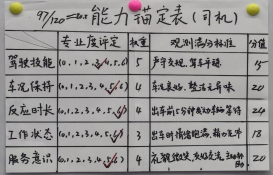 97/120=0.8 能力锚定表(司机)
专业度评定 权重 观测满分标准 分值
驾驶技能 (0,1,2,3,4,5,6) 5 严守交规,驾车平稳 15
车况保持 (0,1,2,3,4,5,6) 4 车况良好,整洁无异味 20
反应时长 (0,1,2,3,4,5,6) 4 出车前5分钟成功车辆等待 24
工作状态 (0,1,2,3,4,5,6) 3 出车时情绪饱满,精力充沛 18
服务意识 (0,1,2,3,4,5,6) 4 礼貌 20